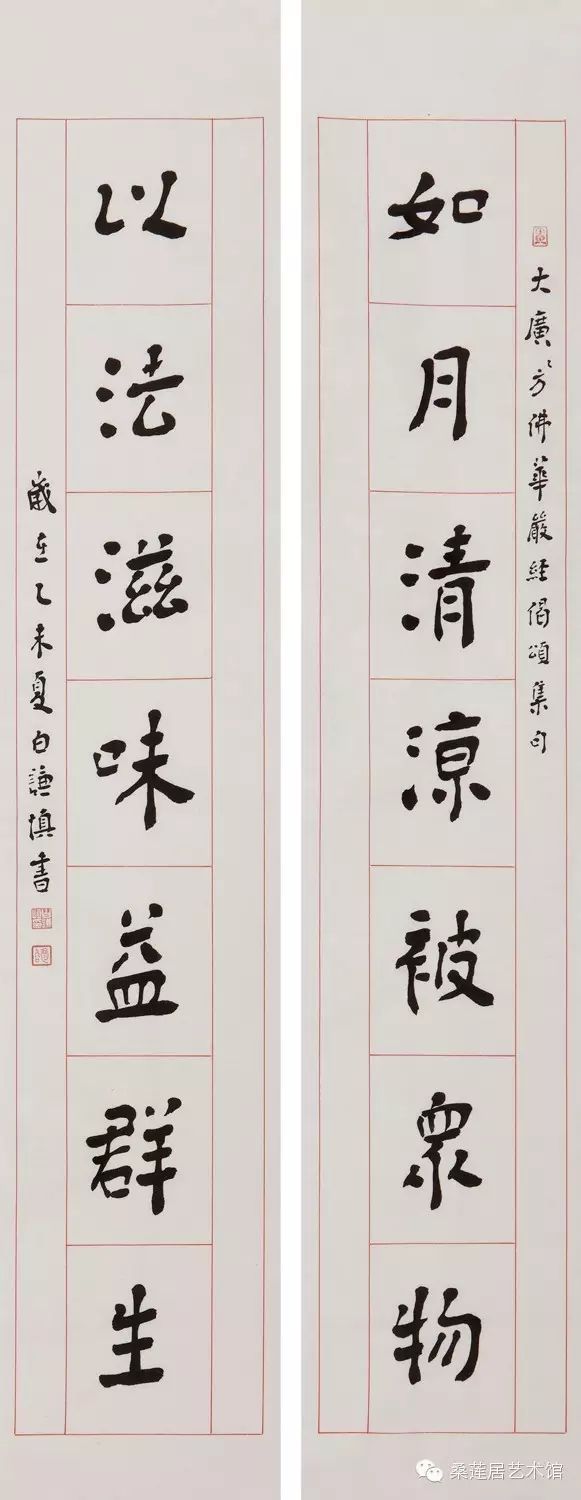 大廣方佛華嚴經偈頌集句
如月清涼被眾物
以法滋味益群生
歲在乙未夏白謙慎書
桑莲居艺术馆